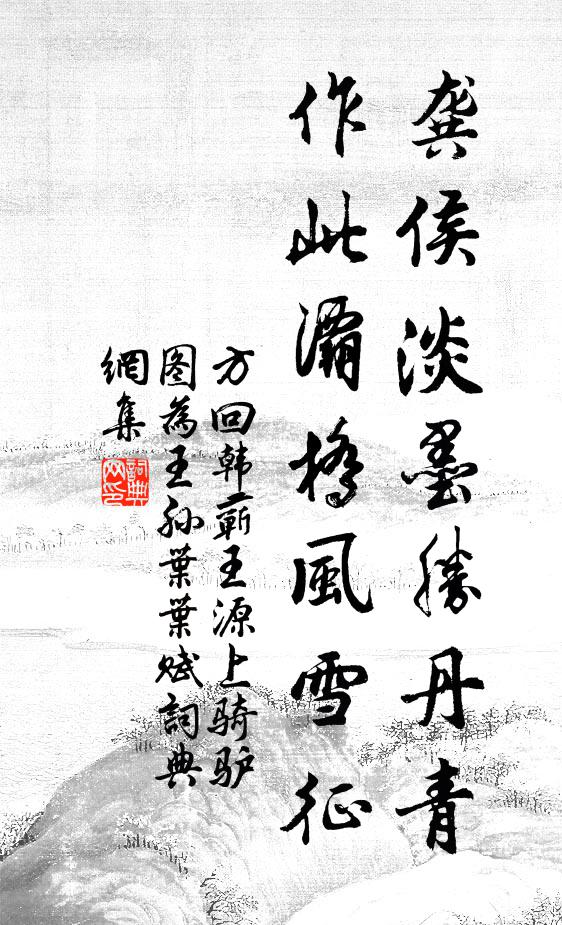 龚侯淡墨勝丹青
作此灞橋風雪征
方回韩蕲王源上骑驴
图為王孙葉葉赋詞典
網集
詞典
网印